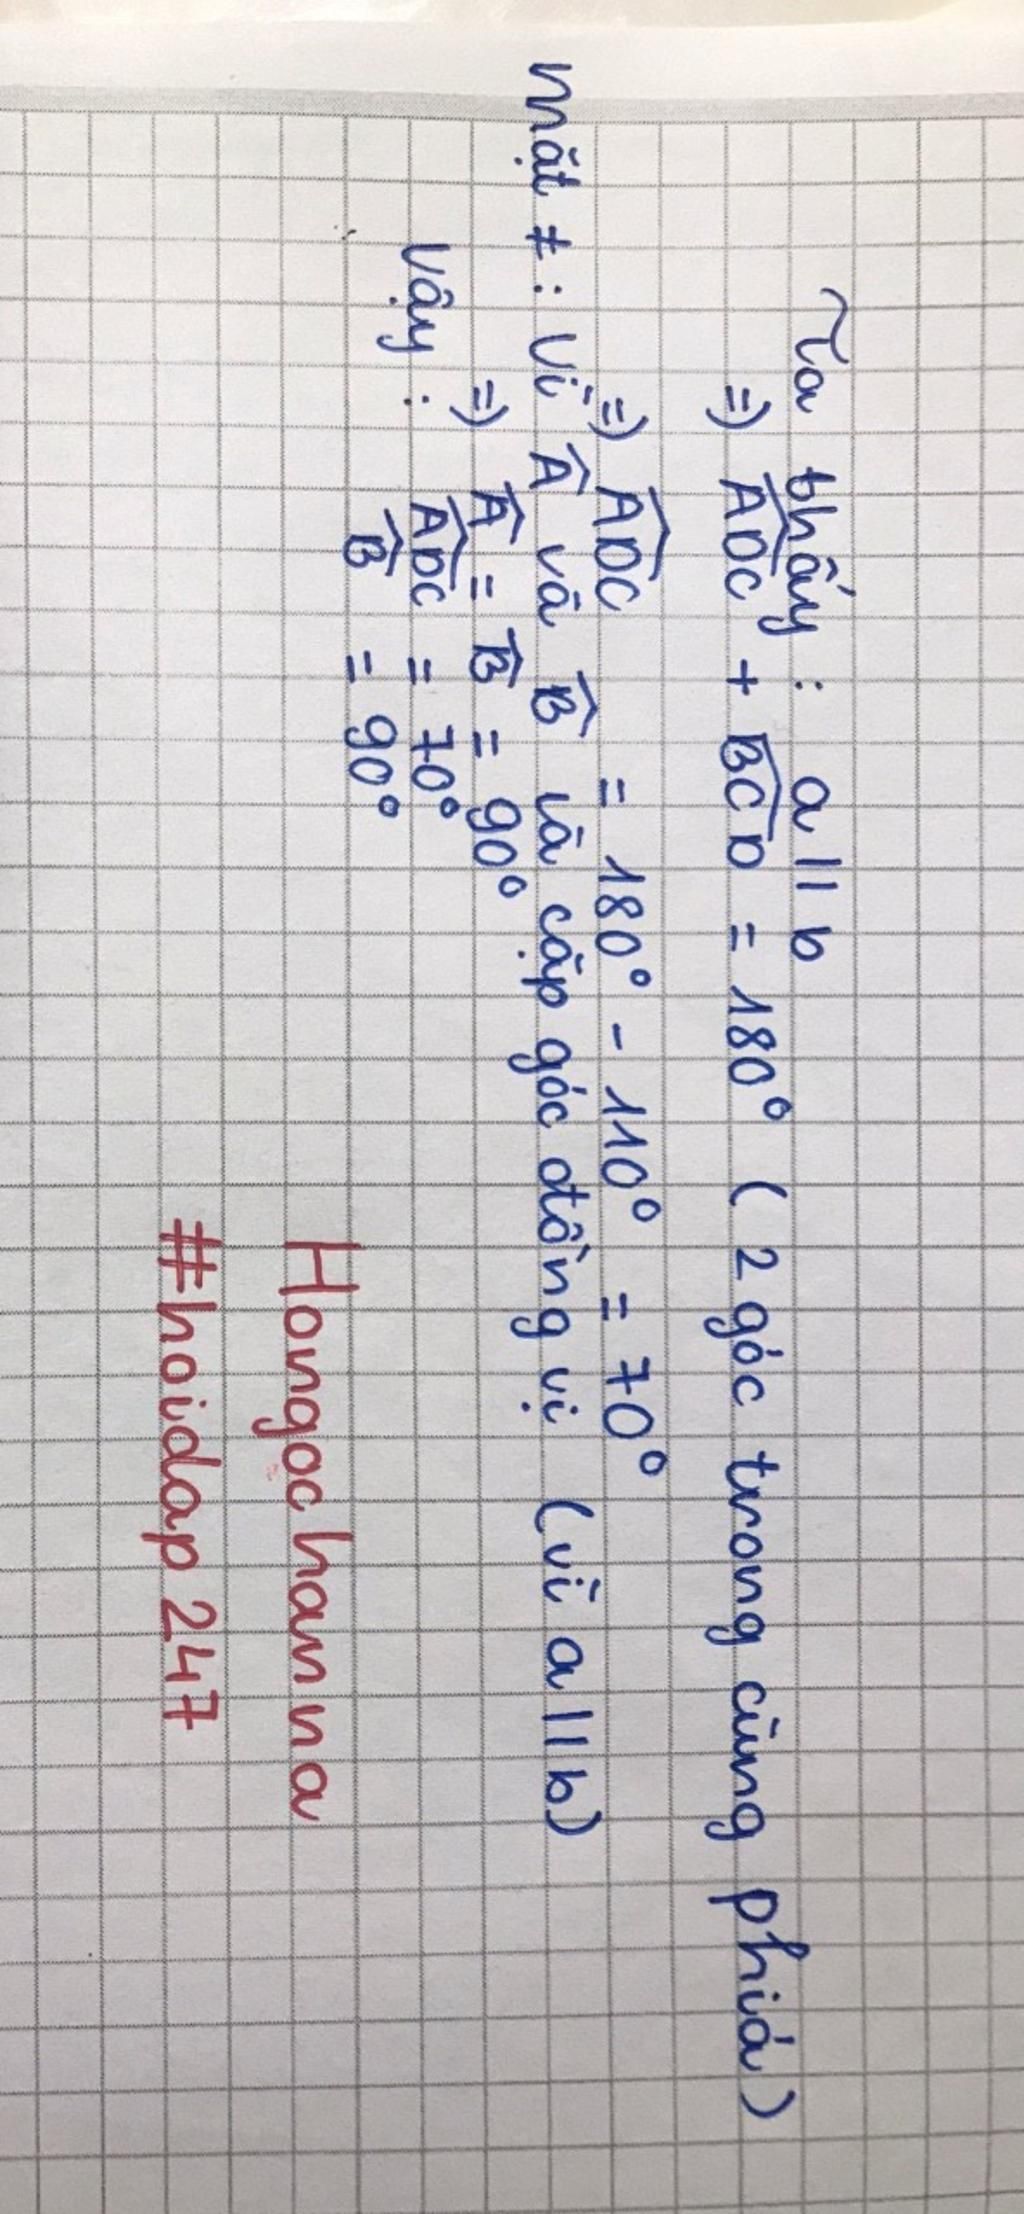 Ta thấy : a || b
=) ADC + BCD = 180° ( 2 góc trong cùng phiá )
=) ADC = 180° - 110° = 70°
mặt ≠ : Vì A và B là cặp góc đồng vị (vì a || b)
=) A = B = 90°
Vậy : ADC = 70°
B = 90°
Hongochanna
#hoidap 247